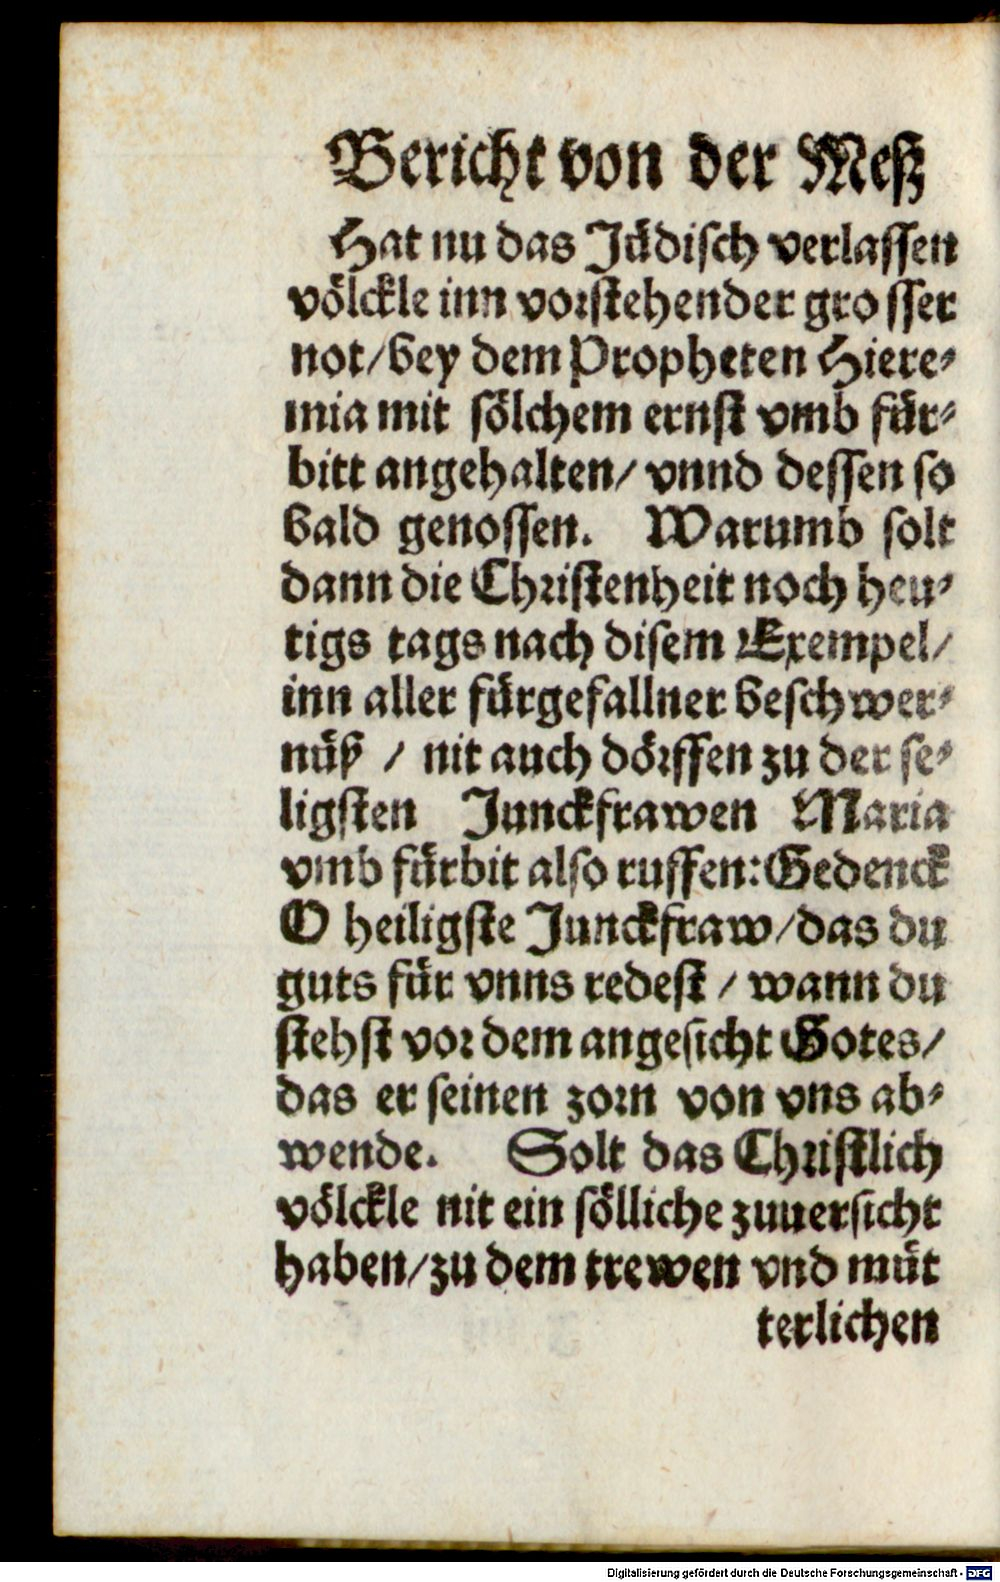 Bericht von der Meſz
Hat nu das Jüdiſch verlaſſen
völckle inn vorſtehender gro ſſer
not/bey dem Propheten Hiere⸗
mia mit ſölchem ernſt vmb für⸗
bitt angehalten/ vnnd deſſen ſo
bald genoſſen. Warumb ſolt
dann die Chriſtenheit noch heu⸗
tigs tags nach diſem Exempel/
inn aller fürgefallner beſchwer⸗
nüß / nit auch dörffen zu der ſe⸗
ligſten Junckfrawen Maria
vmb fürbit alſo ruffen: Gedenck
O heiligſte Junckfraw/das du
guts für vnns redeſt / wann du
ſtehſt vor dem angeſicht Gotes/
das er ſeinen zorn von vns ab⸗
wende. Solt das Chriſtlich
völckle nit ein ſölliche zuuerſicht
haben/zu dem trewen vnd müt
terlichen
Digitalisierung gefördert durch die Deutsche Forschungsgemeinschaft - DFG